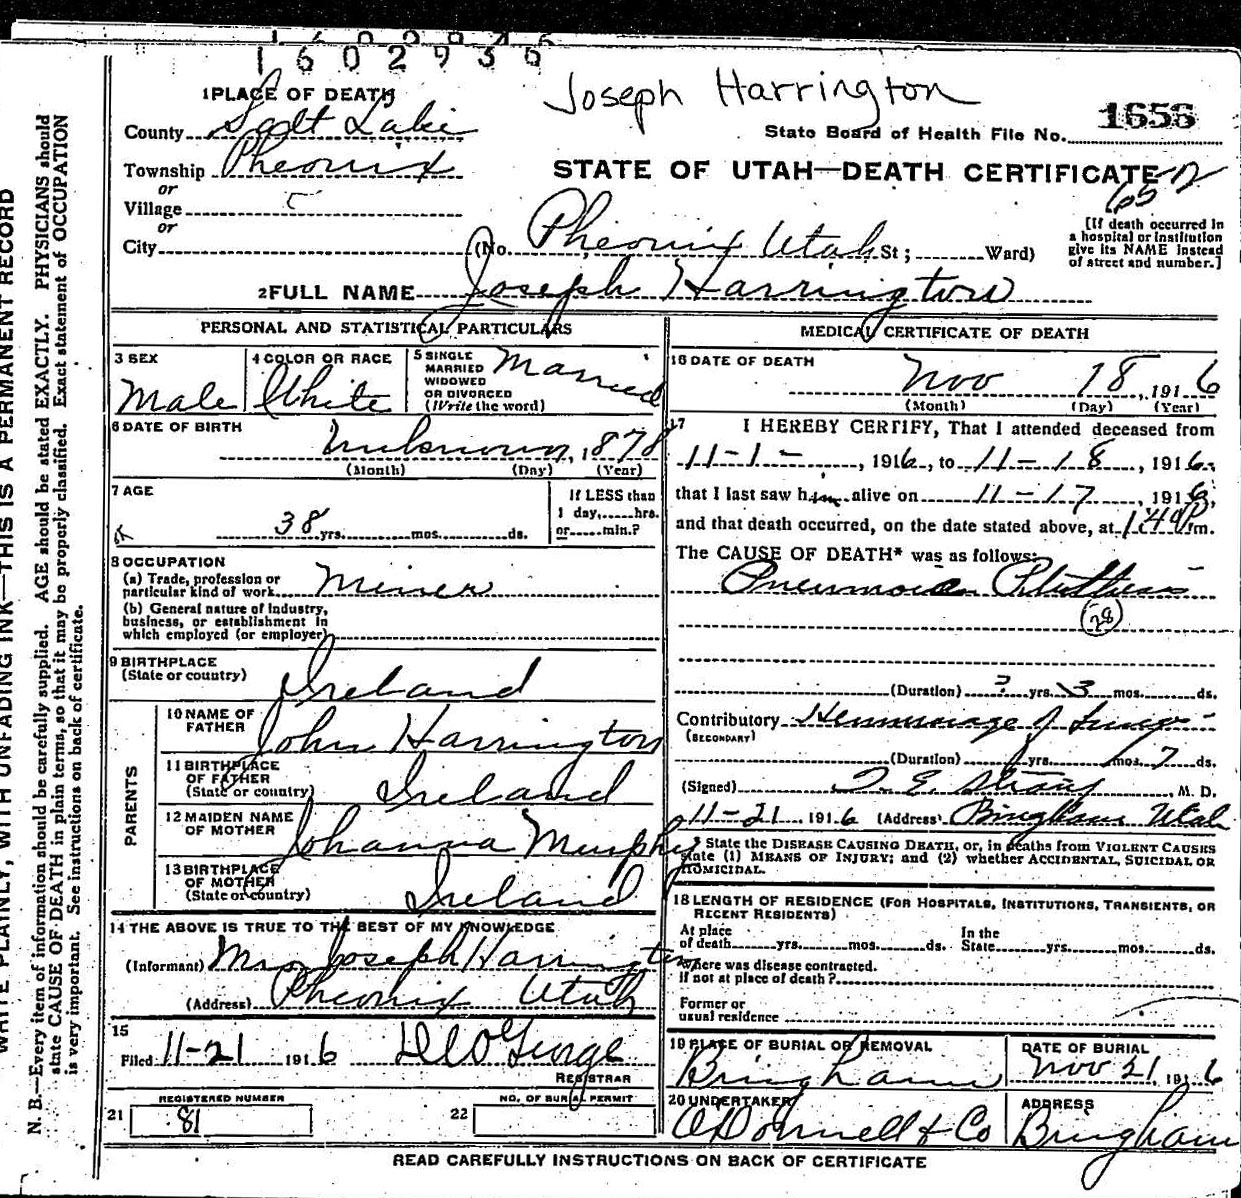 1602936
Joseph Harrington
1 PLACE OF DEATH
County Salt Lake
State Board of Health File No. 1656
Township Pheonix
STATE OF UTAH—DEATH CERTIFICATE
or
Village
or
City (No. Pheonix Utah St; Ward)
[If death occurred in
a hospital or institution
give its NAME instead
of street and number.]
2 FULL NAME Joseph Harrington
PERSONAL AND STATISTICAL PARTICULARS
3 SEX
Male
4 COLOR OR RACE
White
5 SINGLE
MARRIED
WIDOWED
OR DIVORCED
(Write the word)
Married
6 DATE OF BIRTH
Unknown, 1878
(Month) (Day) (Year)
7 AGE
38 yrs. mos. ds.
If LESS than
1 day, hrs.
or min.?
8 OCCUPATION
(a) Trade, profession or
particular kind of work Miner
(b) General nature of industry,
business, or establishment in
which employed (or employer)
9 BIRTHPLACE
(State or country) Ireland
PARENTS
10 NAME OF
FATHER John Harrington
11 BIRTHPLACE
OF FATHER
(State or country) Ireland
12 MAIDEN NAME
OF MOTHER Johanna Murphy
13 BIRTHPLACE
OF MOTHER
(State or country) Ireland
14 THE ABOVE IS TRUE TO THE BEST OF MY KNOWLEDGE
(Informant) Mrs Joseph Harrington
(Address) Pheonix Utah
15
Filed 11-21 1916
REGISTRAR
REGISTERED NUMBER
21 81
NO. OF BURIAL PERMIT
22
MEDICAL CERTIFICATE OF DEATH
16 DATE OF DEATH
Nov 18, 1916
(Month) (Day) (Year)
17 I HEREBY CERTIFY, That I attended deceased from
11-1-, 1916, to 11-18, 1916,
that I last saw him alive on 11-17, 1916,
and that death occurred, on the date stated above, at m.
The CAUSE OF DEATH* was as follows:
28
(Duration) ? yrs. 3 mos. ds.
Contributory Hemmorage of Lungs
(SECONDARY)
(Duration) yrs. mos. 7 ds.
(Signed) M. D.
11-21, 1916 (Address) Bingham Utah
* State the DISEASE CAUSING DEATH, or, in deaths from VIOLENT CAUSES
state (1) MEANS OF INJURY; and (2) whether ACCIDENTAL, SUICIDAL OR
HOMICIDAL.
18 LENGTH OF RESIDENCE (FOR HOSPITALS, INSTITUTIONS, TRANSIENTS, OR
RECENT RESIDENTS)
At place
of death yrs. mos. ds.
In the
State yrs. mos. ds.
Where was disease contracted,
if not at place of death?
Former or
usual residence
19 PLACE OF BURIAL OR REMOVAL
Bingham
DATE OF BURIAL
Nov 21, 1916
20 UNDERTAKER
O'Donnell & Co
ADDRESS
Bingham
READ CAREFULLY INSTRUCTIONS ON BACK OF CERTIFICATE
WRITE PLAINLY, WITH UNFADING INK—THIS IS A PERMANENT RECORD
N. B.—Every item of information should be carefully supplied. AGE should be stated EXACTLY. PHYSICIANS should
state CAUSE OF DEATH in plain terms, so that it may be properly classified. Exact statement of OCCUPATION
is very important. See instructions on back of certificate.